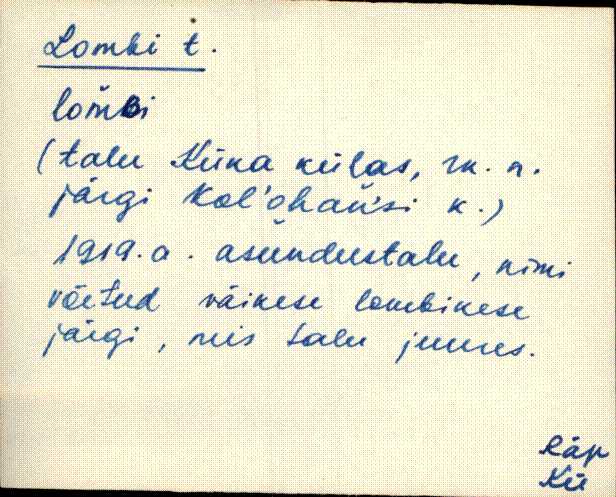 Lombi t.
lom̆bi
(talu Küka külas, rk. n.
järgi Kol'ohańsi k.)
1919. a. asundustalu, nimi
võetud väikese lombikese
järgi, mis talu juures.
Räp
Kü